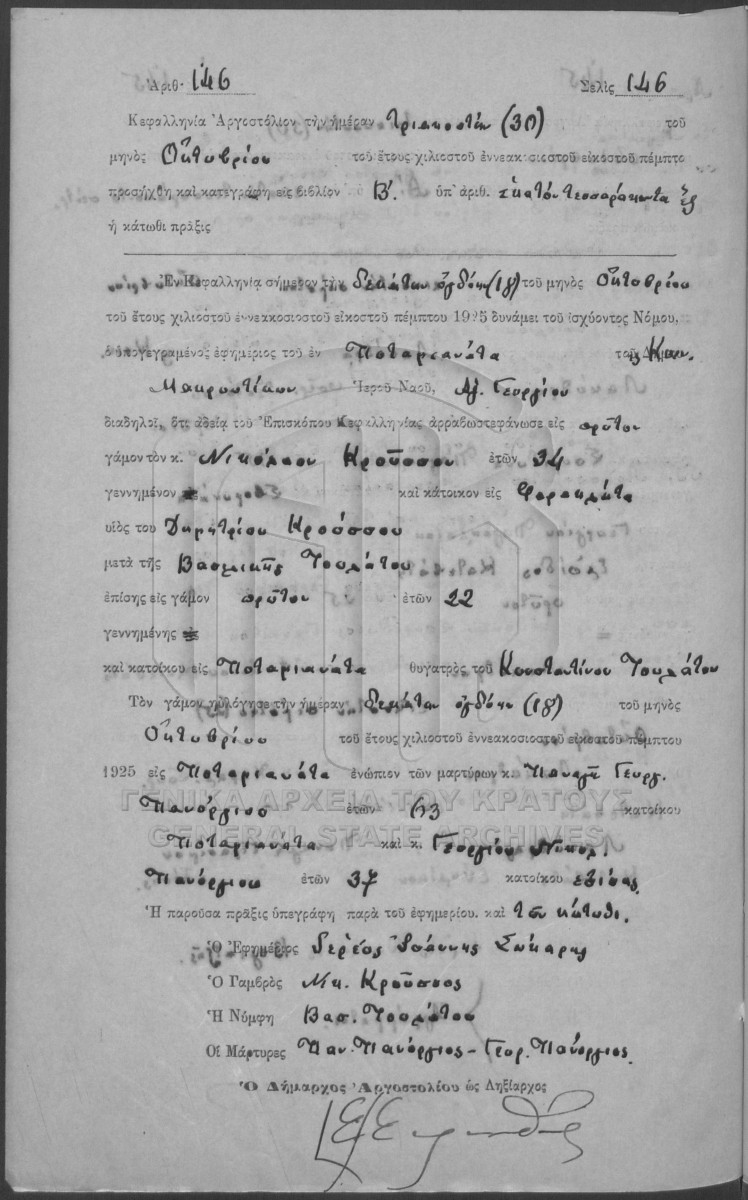 Ἀριθ. 146 Σελὶς 146
Κεφαλληνία Ἀργοστόλιον τὴν ἡμέραν τριακοστὴν (30) τοῦ
μηνὸς Ὀκτωβρίου τοῦ ἔτους χιλιοστοῦ ἐννεακοσιοστοῦ εἰκοστοῦ πέμπτο
προσήχθη καὶ κατεγράφη εἰς βιβλίον Β'. ὑπ' ἀριθ. ἑκατὸν τεσσαράκοντα ἓξ
ἡ κάτωθι πρᾶξις
Ἐν Κεφαλληνίᾳ σήμερον τὴν δεκάτην ὀγδόην (18) τοῦ μηνὸς Ὀκτωβρίου
τοῦ ἔτους χιλιοστοῦ ἐννεακοσιοστοῦ εἰκοστοῦ πέμπτου 1925 δυνάμει τοῦ ἰσχύοντος Νόμου,
ὁ ὑπογεγραμένος ἐφημέριος τοῦ ἐν Ποταμιανάτα Κοιν.
Μακρυωτίκων Ἱεροῦ Ναοῦ, Ἁγ. Γεωργίου
διαδηλοῖ, ὅτι ἀδείᾳ τοῦ Ἐπισκόπου Κεφαλληνίας ἀρραβωστεφάνωσε εἰς πρῶτον
γάμον τὸν κ. Νικόλαον Κροῦσσον ἐτῶν 34
γεννημένον καὶ κάτοικον εἰς Φερεκλάτα
υἱὸς του Δημητρίου Κρούσσου
μετὰ τῆς Βασιλικῆς Τουλάτου
ἐπίσης εἰς γάμον πρῶτον ἐτῶν 22
γεννημένης
καὶ κατοίκου εἰς Ποταμιανάτα θυγατρὸς τοῦ Κωνσταντίνου Τουλάτου
Τὸν γάμον ηὐλόγησε τὴν ἡμέραν δεκάτην ὀγδόην (18) τοῦ μηνὸς
Ὀκτωβρίου τοῦ ἔτους χιλιοστοῦ ἐννεακοσιοστοῦ εἰκοστοῦ πέμπτου
1925 εἰς Ποταμιανάτα ἐνώπιον τῶν μαρτύρων κ. Παναγῆ Γεωργ.
ΓΕΝΙΚΑ ΑΡΧΕΙΑ ΤΟΥ ΚΡΑΤΟΥΣ
Πανόργιου ἐτῶν 63 κατοίκου
GENERAL STATE ARCHIVES
Ποταμιανάτα καὶ κ. Γεωργίου Νικολ.
Πανόργιου ἐτῶν 37 κατοίκου ἐπίσης
Ἡ παροῦσα πρᾶξις ὑπεγράφη παρὰ τοῦ ἐφημερίου. καὶ τῶν κάτωθι.
Ὁ Ἐφημέριος Ἱερεὺς Ἰωάννης
Ὁ Γαμβρὸς Νικ. Κροῦσσος
Ἡ Νύμφη Βασ. Τουλάτου
Οἱ Μάρτυρες Παν. Πανόργιος - Γεωρ. Πανόργιος
Ὁ Δήμαρχος Ἀργοστολίου ὡς Ληξίαρχος